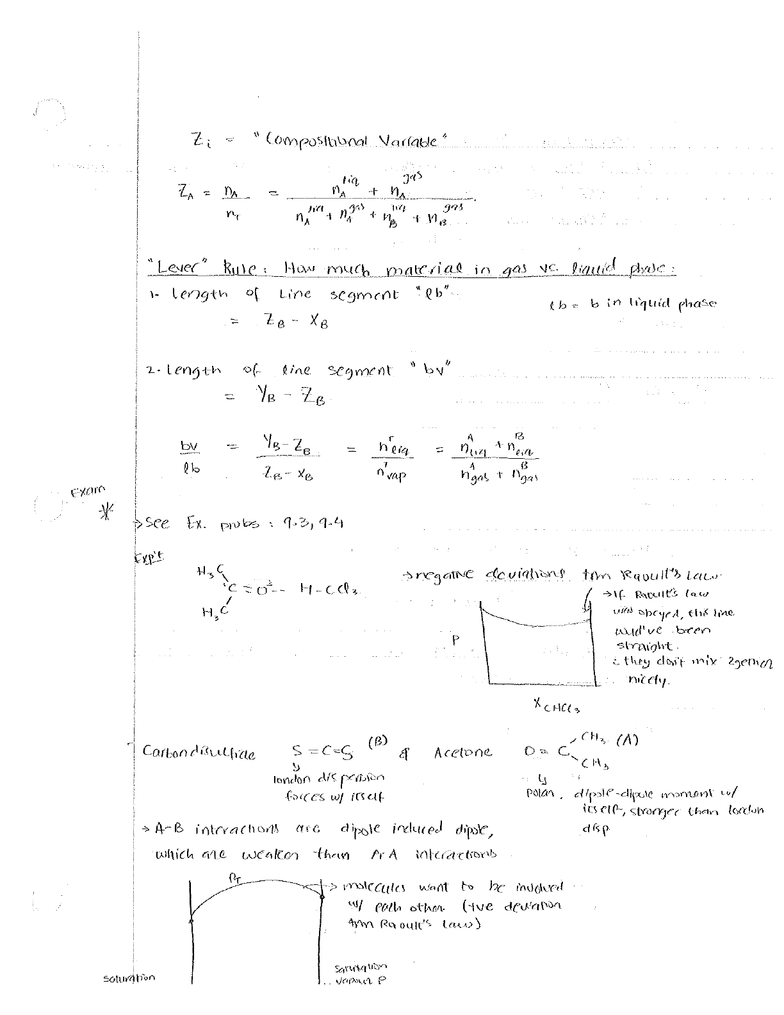 Zi = "Compositional Variable"
Z_A = n_A / n_T = (n_A^liq + n_A^gas) / (n_A^liq + n_A^gas + n_B^liq + n_B^gas)
"Lever" Rule: How much material in gas vs. liquid phase:
1- Length of Line segment "lb"
lb = b in liquid phase
= Z_B - X_B
2- Length of line segment "bv"
= Y_B - Z_B
bv / lb = (Y_B - Z_B) / (Z_B - X_B) = n^T_liq / n^T_vap = (n^A_liq + n^B_liq) / (n^A_gas + n^B_gas)
Exam
* → See Ex. probs: 9.3, 9.4
Exp't
H3C
C = O --- H-CCl3
H3C
→ negative deviations from Raoult's Law
→ If Raoult's law
was obeyed, this line
would've been
straight.
∴ they don't mix 2gether
nicely.
P
X CHCl3
Carbon disulfide S=C=S (B) & Acetone O=C CH3 CH3 (A)
london dispersion
forces w/ itself
polar, dipole-dipole moment w/
itself, stronger than london
disp
→ A-B interactions are dipole induced dipole,
which are weaker than A-A interactions
P_T
→ molecules want to be involved
w/ each other (+ve deviation
from Raoult's Law)
saturation
saturation
vapour P